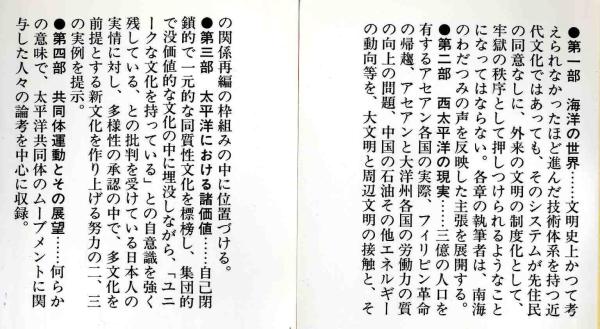 ●第一部 海洋の世界……文明史上かつて考
えられなかったほど進んだ技術体系を持つ近
代文化ではあっても、そのシステムが先住民
の同意なしに、外来の文明の制度化として、
牢獄の秩序として押しつけられるようなこと
になってはならない。各章の執筆者は、南海
のわだつみの声を反映した主張を展開する。
●第二部 西太平洋の現実……三億の人口を
有するアセアン各国の実際、フィリピン革命
の帰趨、アセアンと大洋州各国の労働力の質
の向上の問題、中国の石油その他エネルギー
の動向等を、大文明と周辺文明の接触と、そ
の関係再編の枠組みの中に位置づける。
●第三部 太平洋における諸価値……自己閉
鎖的で一元的な同質性文化を標榜し、集団的
で没価値的な文化の中に埋没しながら、「ユニ
ークな文化を持っている」との自意識を強く
残している、との批判を受けている日本人の
実情に対し、多様性の承認の中で、多文化を
前提とする新文化を作り上げる努力の二、三
の実例を提示。
●第四部 共同体運動とその展望……何らか
の意味で、太平洋共同体のムーブメントに関
与した人々の論考を中心に収録。